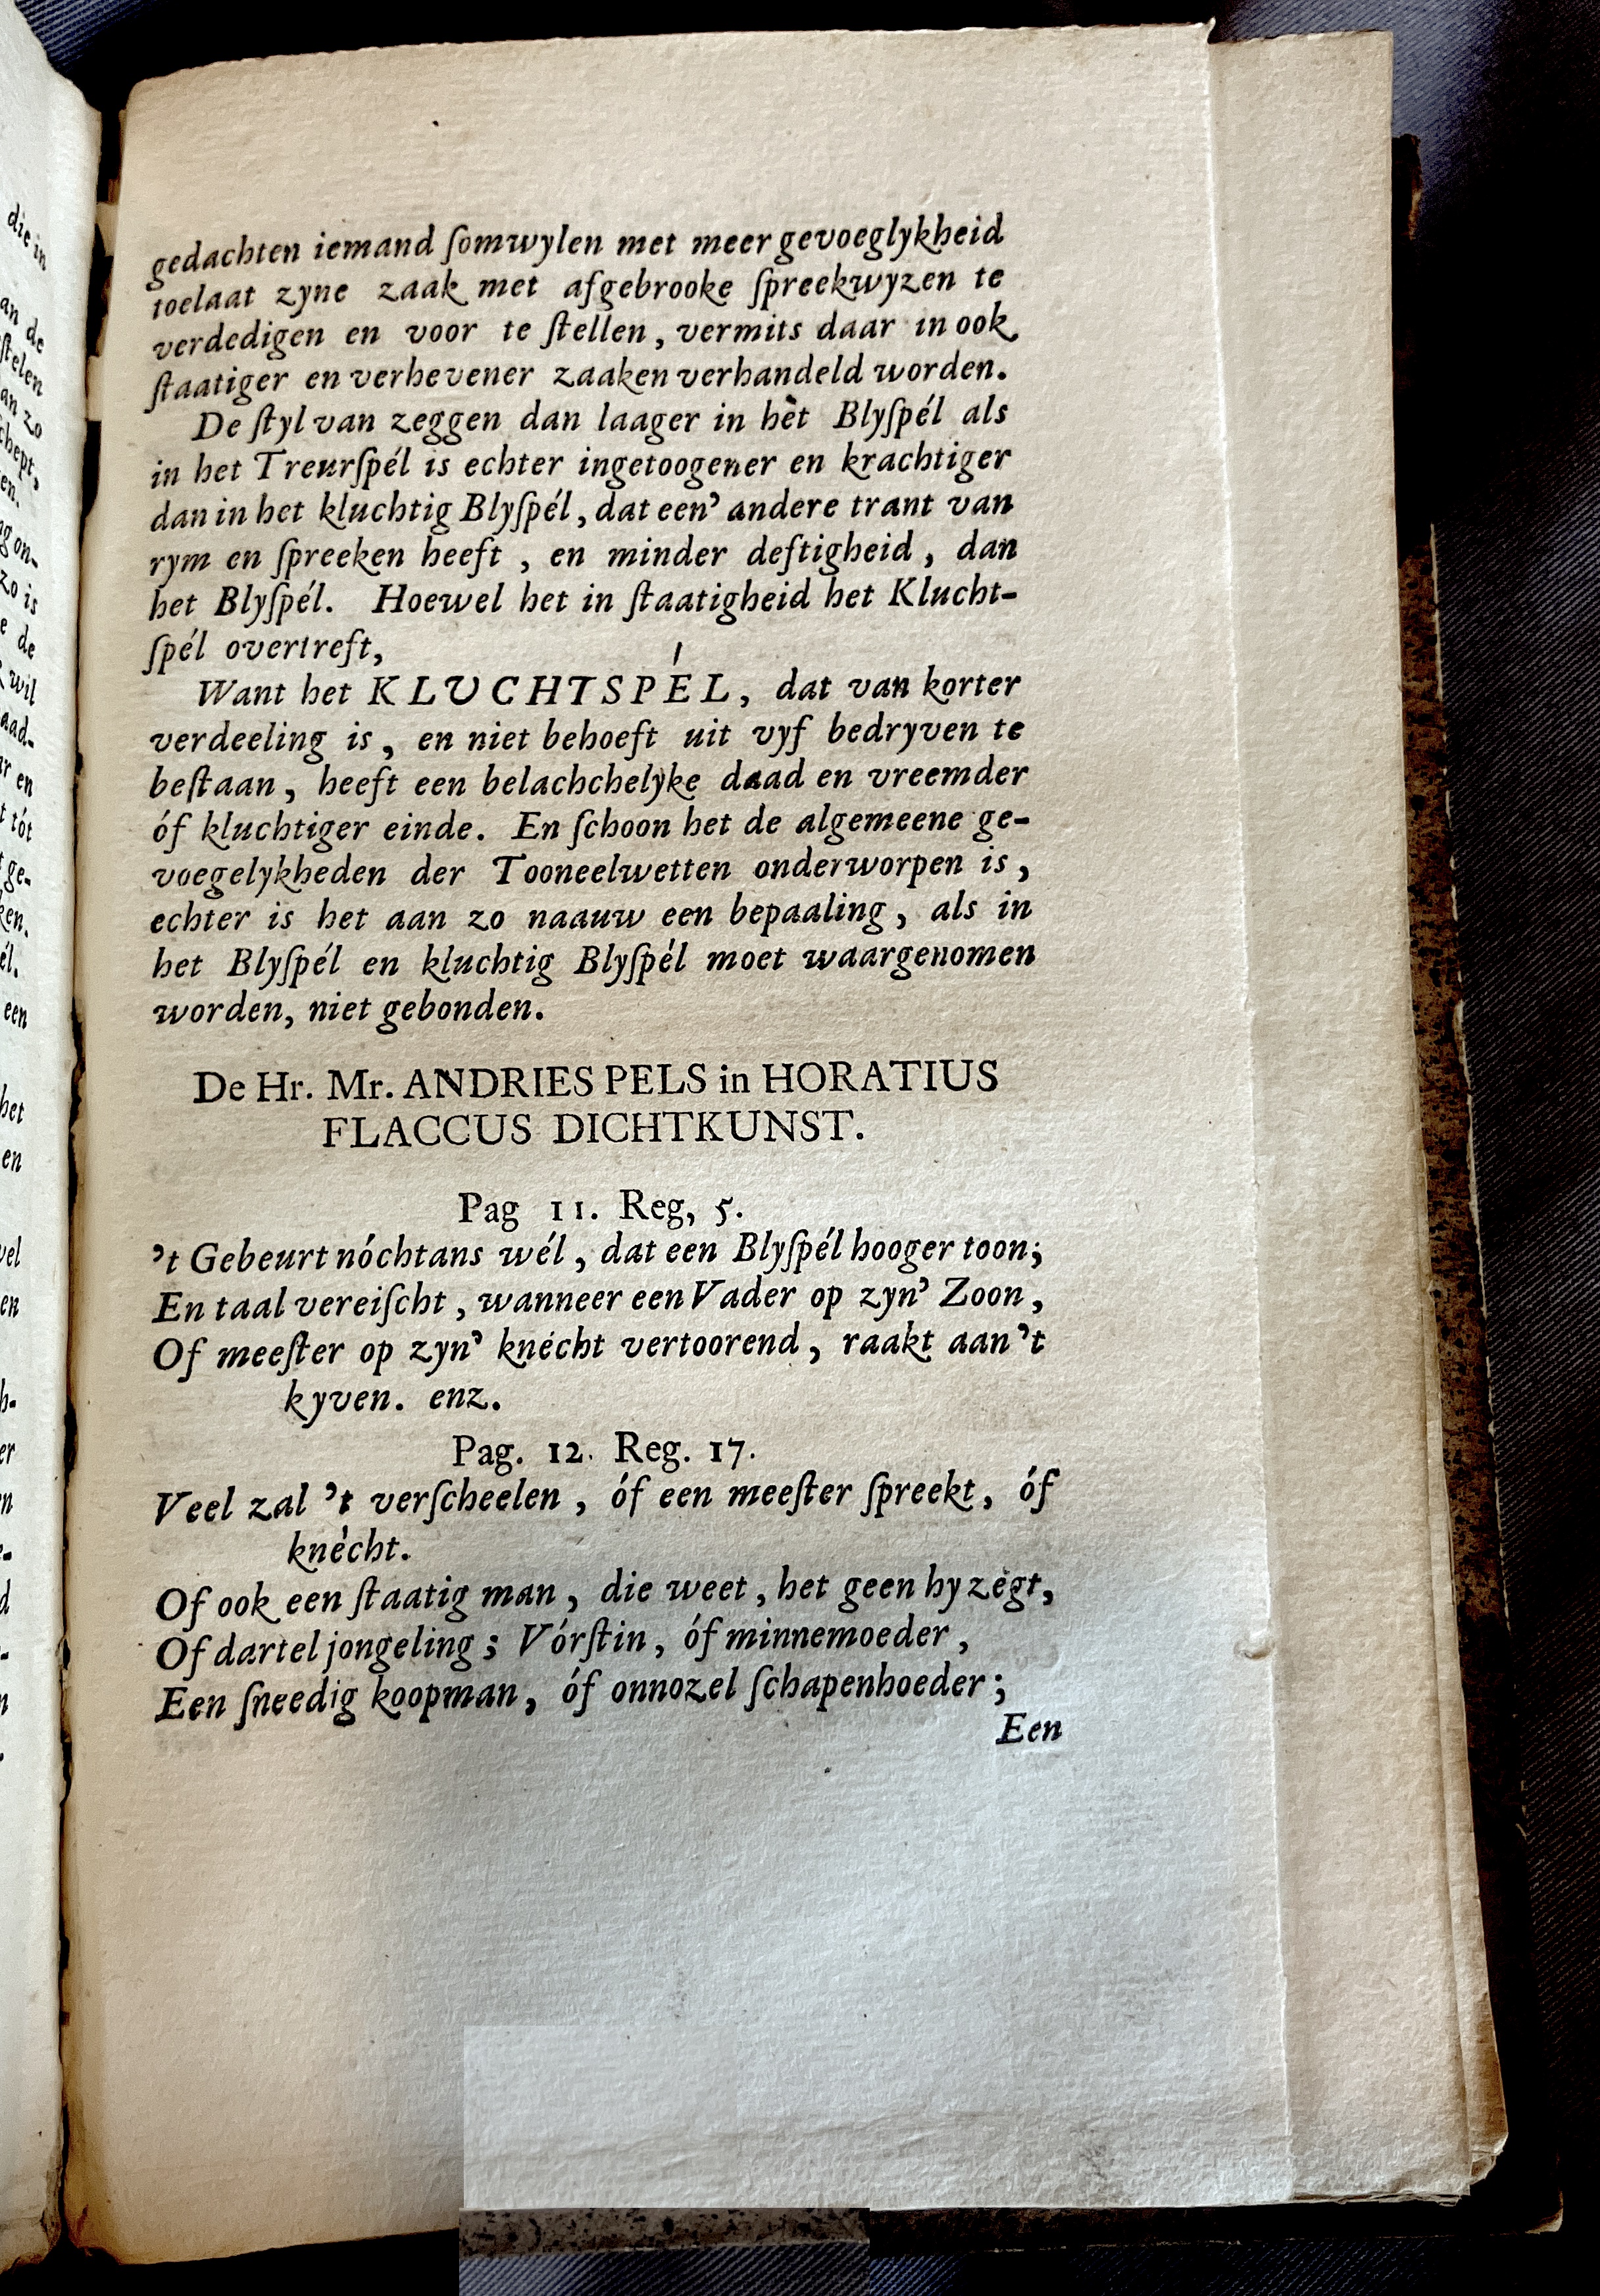 gedachten iemand ſomwylen met meer gevoeglykheid
toelaat zyne zaak met afgebrooke ſpreekwyzen te
verdedigen en voor te ſtellen, vermits daar in ook
ſtaatiger en verhevener zaaken verhandeld worden.
De ſtyl van zeggen dan laager in hèt Blyſpél als
in het Treurſpél is echter ingetoogener en krachtiger
dan in het kluchtig Blyſpél, dat een' andere trant van
rym en ſpreeken heeft, en minder deftigheid, dan
het Blyſpél. Hoewel het in ſtaatigheid het Klucht-
ſpél overtreft,
Want het KLUCHTSPÉL, dat van korter
verdeeling is, en niet behoeft uit vyf bedryven te
beſtaan, heeft een belachchelyke daad en vreemder
óf kluchtiger einde. En ſchoon het de algemeene ge-
voegelykheden der Tooneelwetten onderworpen is,
echter is het aan zo naauw een bepaaling, als in
het Blyſpél en kluchtig Blyſpél moet waargenomen
worden, niet gebonden.
De Hr. Mr. ANDRIES PELS in HORATIUS
FLACCUS DICHTKUNST.
Pag 11. Reg, 5.
't Gebeurt nóchtans wél, dat een Blyſpél hooger toon;
En taal vereiſcht, wanneer een Vader op zyn' Zoon,
Of meeſter op zyn' knécht vertoorend, raakt aan 't
kyven. enz.
Pag. 12. Reg. 17.
Veel zal 't verſcheelen, óf een meeſter ſpreekt, óf
knécht.
Of ook een ſtaatig man, die weet, het geen hy zégt,
Of dartel jongeling; Vórſtin, óf minnemoeder,
Een ſneedig koopman, óf onnozel ſchapenhoeder;
Een
die in
an de
ſtelen
an zo
en.
zo is
e de
wil
aad-
en
tót
ge-
ken.
él.
een
het
en
vel
en